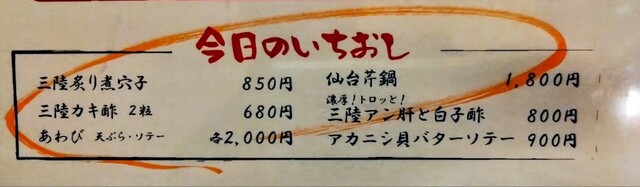 今日のいちおし
三陸炙り煮穴子 850円
三陸カキ酢 2粒 680円
あわび 天ぷら・ソテー 各2,000円
仙台芹鍋 1,800円
濃厚!トロッと!
三陸アン肝と白子酢 800円
アカニシ貝バターソテー 900円